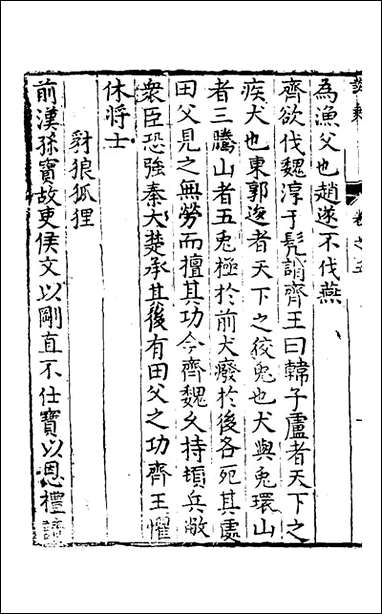 卷之五
為漁父也趙遂不伐燕
齊欲伐魏淳于髡謂齊王曰韓子盧者天下之
疾犬也東郭逡者天下之狡兔也犬與兔環山
者三騰山者五兔極於前犬癈於後各死其處
田父見之無勞而擅其功今齊魏久持頓兵敝
衆臣恐強秦大楚承其後有田父之功齊王懼
休將士
豺狼狐狸
前漢孫寶故吏侯文以剛直不仕寶以恩禮請